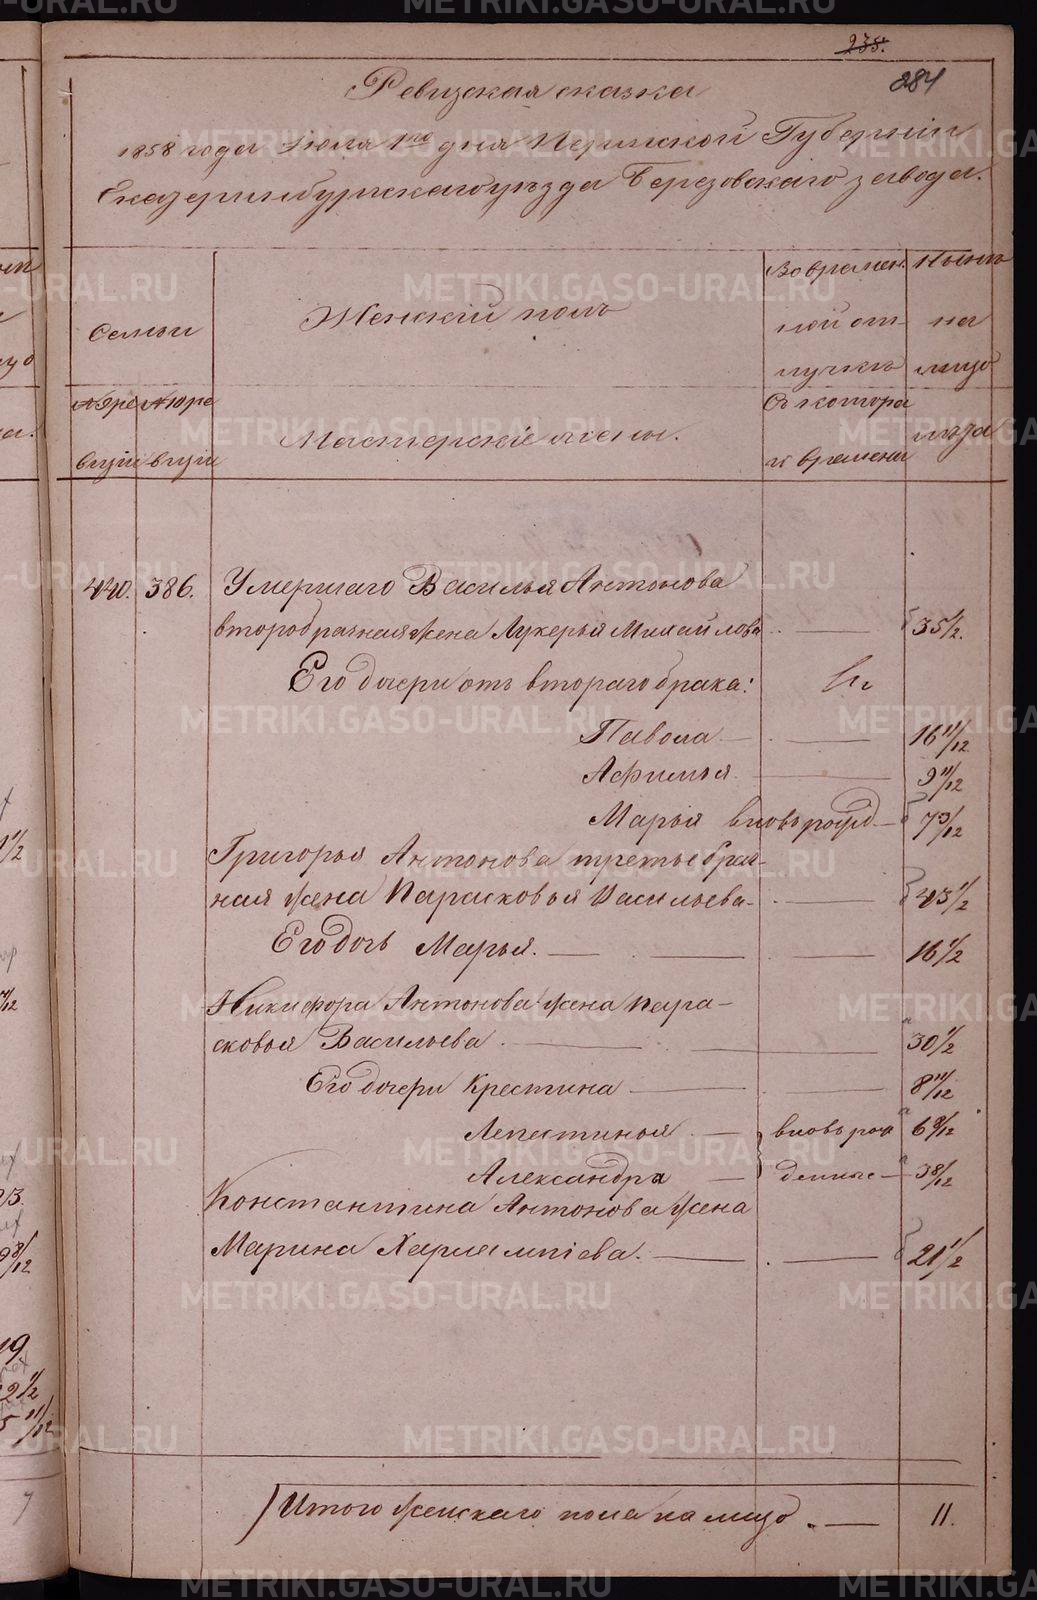 235.
284
Ревизская сказка
1858 года Июля 1го дня Пермской Губернии
Екатеринбургскаго уезда Березовскаго завода.
Семьи
Женский полъ
Во времен
ной от
лучкъ
Нынъ
на
лицо
№ пре № пре
вгий вгии
Мастерские жены.
Съ котора
го времени
лъта
440. 386. Умершаго Василья Антонова
второбрачная жена Лукерья Михайлова 35 1/2.
Его дочери отъ втораго брака:
Павола 16 11/12
Афимья 9 11/12
Марья вновь рожд 7 3/12
Григорья Антонова третьебрач-
ная жена Парасковья Васильева 43 1/2
Его дочь Марья. 16 1/2
Никифора Антонова жена Пара-
сковья Васильева 30 1/2
Его дочери Крестина 8 11/12
Лепестинья вновь рож 6 9/12
Александра денные 3 8/12
Константина Антонова жена
Марина Харлампиева. 21 1/2
Итого женскаго пола на лицо 11.
METRIKI.GASO-URAL.RU